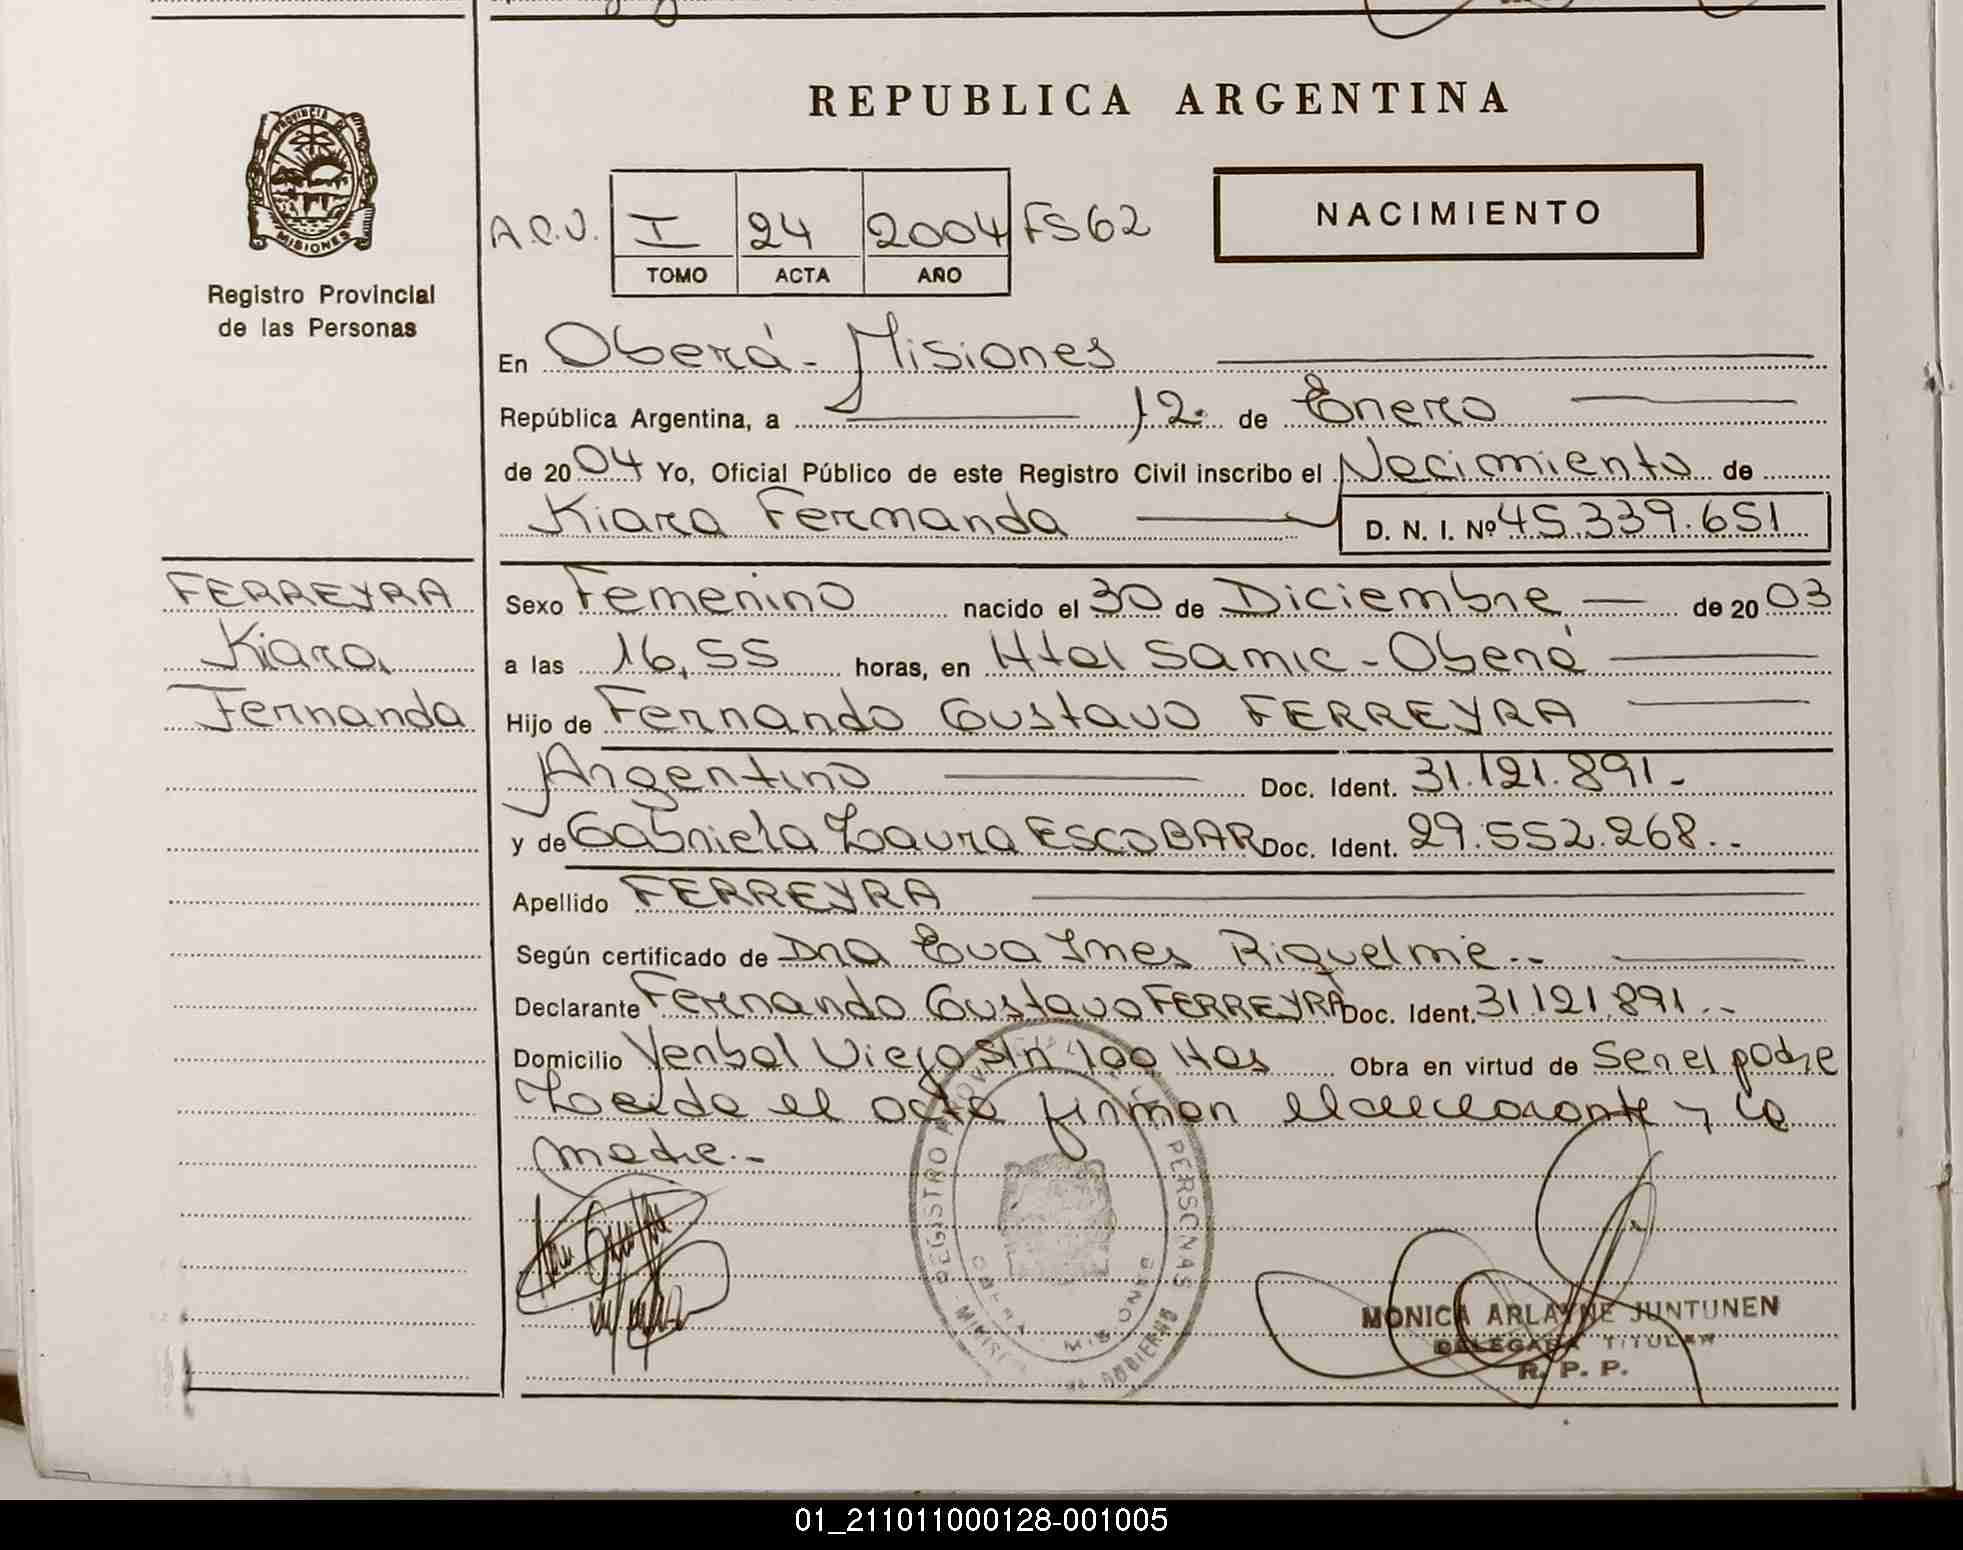 REPUBLICA ARGENTINA
PROVINCIA DE
MISIONES
Registro Provincial
de las Personas
A.C.V. I 24 2004 FS 62
TOMO ACTA AÑO
NACIMIENTO
En Oberá - Misiones
República Argentina, a 12 de Enero
de 20 04 Yo, Oficial Público de este Registro Civil inscribo el Nacimiento de
Kiara Fernanda D. N. I. Nº 45.339.651
FERREYRA
Kiara
Fernanda
Sexo Femenino nacido el 30 de Diciembre de 20 03
a las 16,55 horas, en Htal Samic - Oberá
Hijo de Fernando Gustavo FERREYRA
Argentino Doc. Ident. 31.121.891.-
y de Gabriela Laura ESCOBAR Doc. Ident. 29.552.268.-
Apellido FERREYRA
Según certificado de Dra Eva Ines Riquelme.-
Declarante Fernando Gustavo FERREYRA Doc. Ident. 31.121.891.-
Domicilio Yerbal Viejo S/n 100 Has Obra en virtud de Ser el padre
Leida el acta firman el declarante y la
madre.-
REGISTRO PERSONAS
OBERA MISIONES
GOBIERNO
MONICA ARLAYNE JUNTUNEN
DELEGADA TITULAR
R. P. P.
01_211011000128-001005